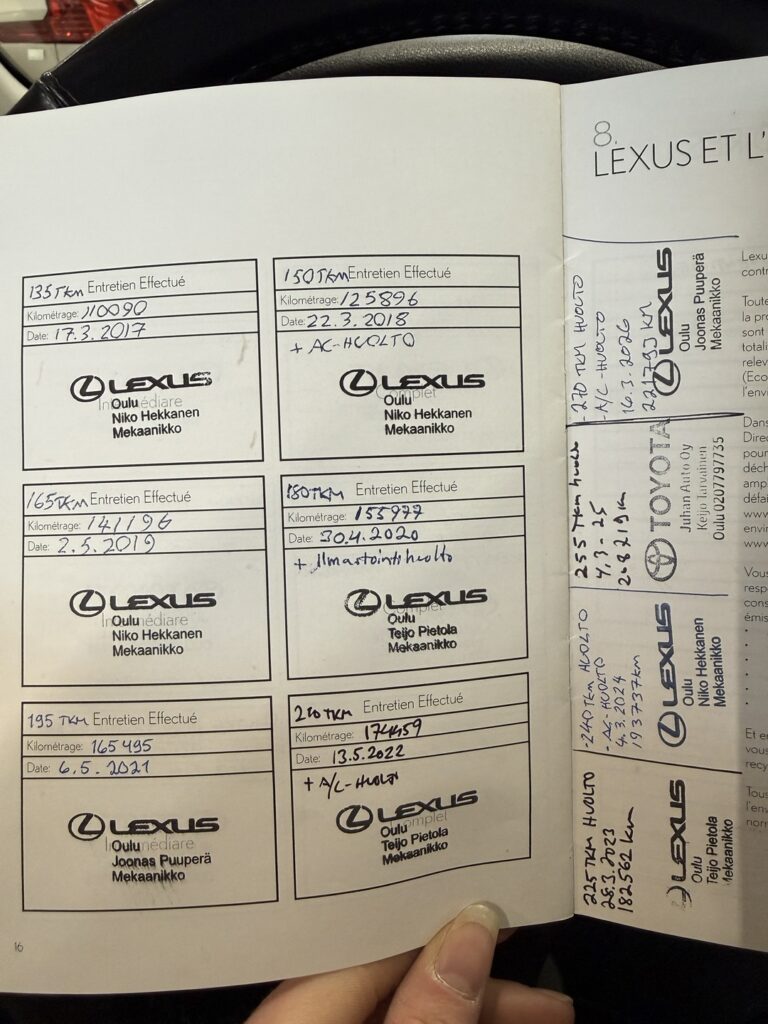 135TKM Entretien Effectué
Kilométrage: 110090
Date: 17.3.2017
LEXUS
Oulu
Niko Hekkanen
Mekaanikko
150TKM Entretien Effectué
Kilométrage: 125896
Date: 22.3.2018
+ AC-HUOLTO
LEXUS
Complet
Oulu
Niko Hekkanen
Mekaanikko
165TKM Entretien Effectué
Kilométrage: 141196
Date: 2.5.2019
LEXUS
Oulu
Niko Hekkanen
Mekaanikko
180TKM Entretien Effectué
Kilométrage: 155977
Date: 30.4.2020
+ Ilmastointihuolto
LEXUS
Complet
Oulu
Teijo Pietola
Mekaanikko
195 TKM Entretien Effectué
Kilométrage: 165495
Date: 6.5.2021
LEXUS
Oulu
Joonas Puuperä
Mekaanikko
210 TKM Entretien Effectué
Kilométrage: 174459
Date: 13.5.2022
+ A/C-HUOLTO
LEXUS
Complet
Oulu
Teijo Pietola
Mekaanikko
16
8.
LEXUS ET L'
-270 TKM HUOLTO
-A/C-HUOLTO
16.3.2026
221793 KM
LEXUS
Oulu
Joonas Puuperä
Mekaanikko
255 TKM huolto
4.3-25
208219KM
TOYOTA
Juhan Auto Oy
Keijo Tarvainen
Oulu 0207797735
-240TKM HUOLTO
- AC-HUOLTO
4.3.2024
193737km
LEXUS
Oulu
Niko Hekkanen
Mekaanikko
225TKM HUOLTO
28.3.2023
182562 km
LEXUS
Oulu
Teijo Pietola
Mekaanikko
Lexu
contr
Toute
la pro
sont
totali
relev
(Eco
l'envi
Dans
Direc
pour
déch
amp
défai
www
envir
www
Vous
resp
cons
émis
Et er
vous
recy
Tous
l'env
norm